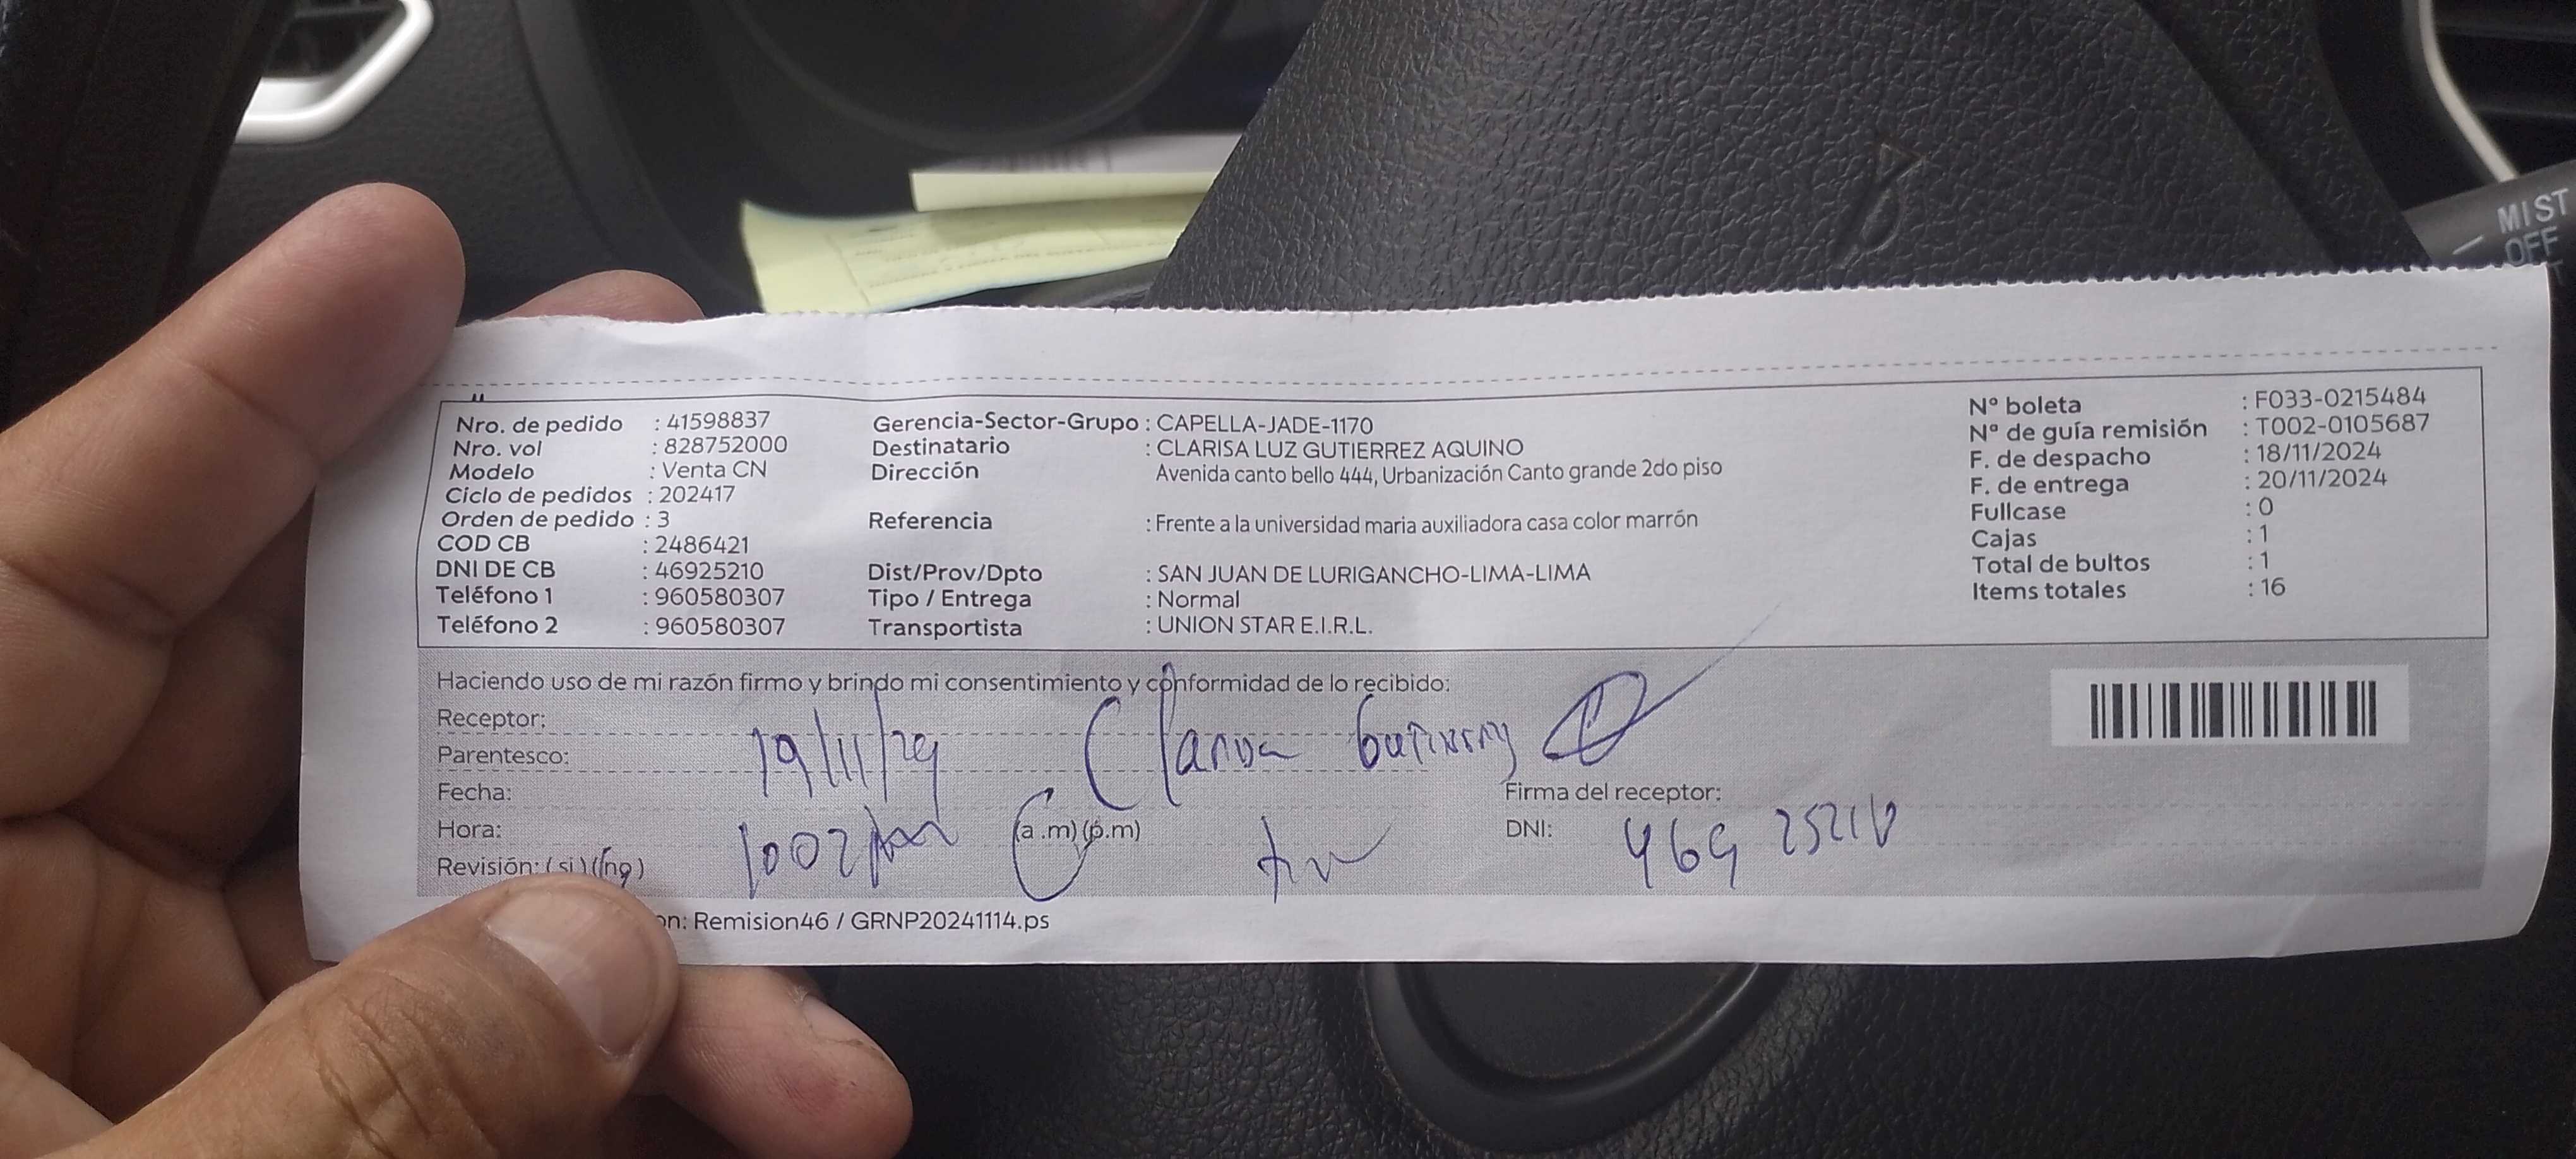 MIST
OFF
Nro. de pedido : 41598837
Nro. vol : 828752000
Modelo : Venta CN
Ciclo de pedidos : 202417
Orden de pedido : 3
COD CB : 2486421
DNI DE CB : 46925210
Teléfono 1 : 960580307
Teléfono 2 : 960580307
Gerencia-Sector-Grupo : CAPELLA-JADE-1170
Destinatario : CLARISA LUZ GUTIERREZ AQUINO
Dirección Avenida canto bello 444, Urbanización Canto grande 2do piso
Referencia : Frente a la universidad maria auxiliadora casa color marrón
Dist/Prov/Dpto : SAN JUAN DE LURIGANCHO-LIMA-LIMA
Tipo / Entrega : Normal
Transportista : UNION STAR E.I.R.L.
Nº boleta : F033-0215484
Nº de guía remisión : T002-0105687
F. de despacho : 18/11/2024
F. de entrega : 20/11/2024
Fullcase : 0
Cajas : 1
Total de bultos : 1
Items totales : 16
Haciendo uso de mi razón firmo y brindo mi consentimiento y conformidad de lo recibido:
Receptor:
Parentesco: 19/11/24
Fecha:
Hora: 1002 (a .m) (p.m)
Revisión: ( si ) ( no )
Firma del receptor:
DNI: 46925210
on: Remision46 / GRNP20241114.ps